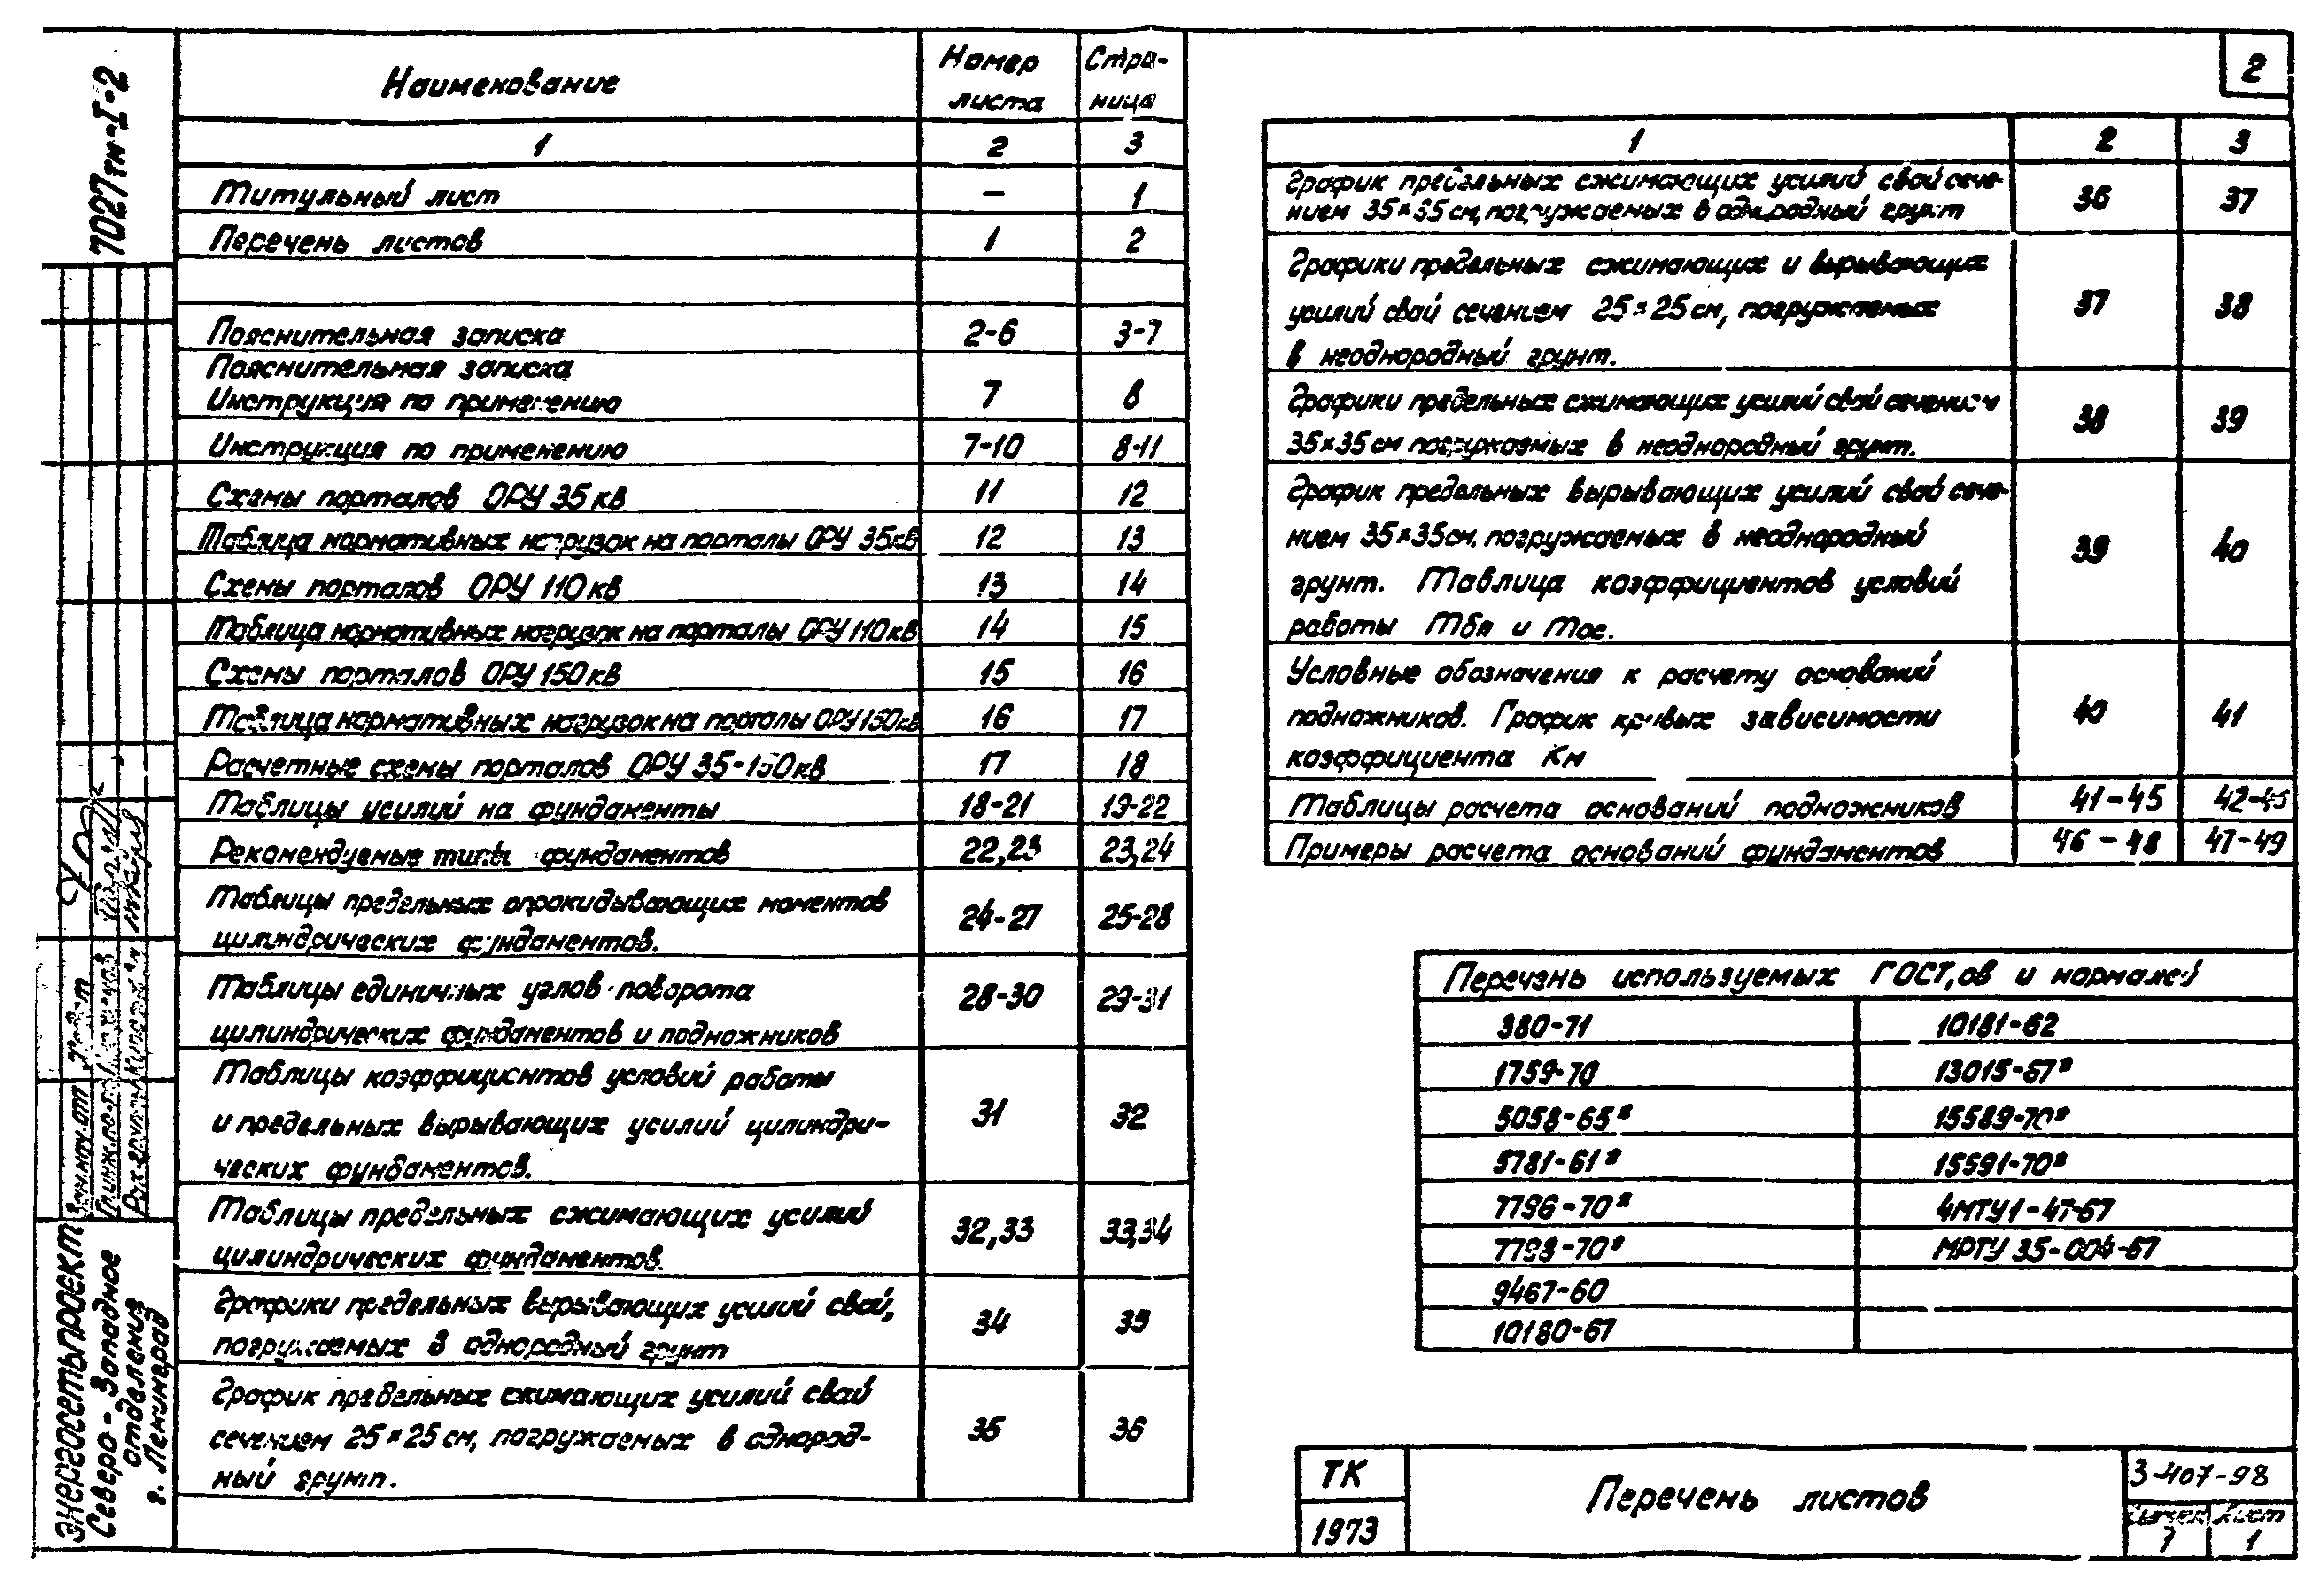 7027тм-I-2
Наименование
Номер листа
Стра-ница
1 2 3
Титульный лист — 1
Перечень листов 1 2
Пояснительная записка 2-6 3-7
Пояснительная записка
Инструкция по применению 7 8
Инструкция по применению 7-10 8-11
Схемы порталов ОРУ 35 кв 11 12
Таблица нормативных нагрузок на порталы ОРУ 35кв 12 13
Схемы порталов ОРУ 110 кв 13 14
Таблица нормативных нагрузок на порталы ОРУ 110 кв 14 15
Схемы порталов ОРУ 150 кв 15 16
Таблица нормативных нагрузок на порталы ОРУ 150кв 16 17
Расчетные схемы порталов ОРУ 35-150 кв 17 18
Таблицы усилий на фундаменты 18-21 19-22
Рекомендуемые типы фундаментов 22,23 23,24
Таблицы предельных опрокидывающих моментов
цилиндрических фундаментов. 24-27 25-28
Таблицы единичных углов поворота
цилиндрических фундаментов и подножников 28-30 29-31
Таблицы коэффициентов условий работы
и предельных вырывающих усилий цилиндри-
ческих фундаментов. 31 32
Таблицы предельных сжимающих усилий
цилиндрических фундаментов. 32,33 33,34
Графики предельных вырывающих усилий свай,
погружаемых в однородный грунт 34 35
График предельных сжимающих усилий свай
сечением 25×25 см, погружаемых в однород-
ный грунт. 35 36
2
1 2 3
График предельных сжимающих усилий свай сече-
нием 35×35 см, погружаемых в однородный грунт 36 37
Графики предельных сжимающих и вырывающих
усилий свай сечением 25×25 см, погружаемых
в неоднородный грунт. 37 38
Графики предельных сжимающих усилий свай сечением
35×35 см погружаемых в неоднородный грунт. 38 39
График предельных вырывающих усилий свай сече-
нием 35×35см, погружаемых в неоднородный
грунт. Таблица коэффициентов условий
работы 39 40
Условные обозначения к расчету оснований
подножников. График кривых зависимости
коэффициента Км 40 41
Таблицы расчета оснований подножников 41-45 42-46
Примеры расчета оснований фундаментов 46-48 47-49
Перечень используемых ГОСТ,ов и нормалей
380-71 10181-62
1759-70 13015-67*
5058-65* 15589-70*
5781-61* 15591-70*
7796-70* 4МТУ1-47-67
7798-70* МРТУ 35-004-67
9467-60
10180-67
ТК
1973
Перечень листов
3-407-98
Выпуск Лист
1 1
Энергосетьпроект
Северо-Западное
отделение
г. Ленинград